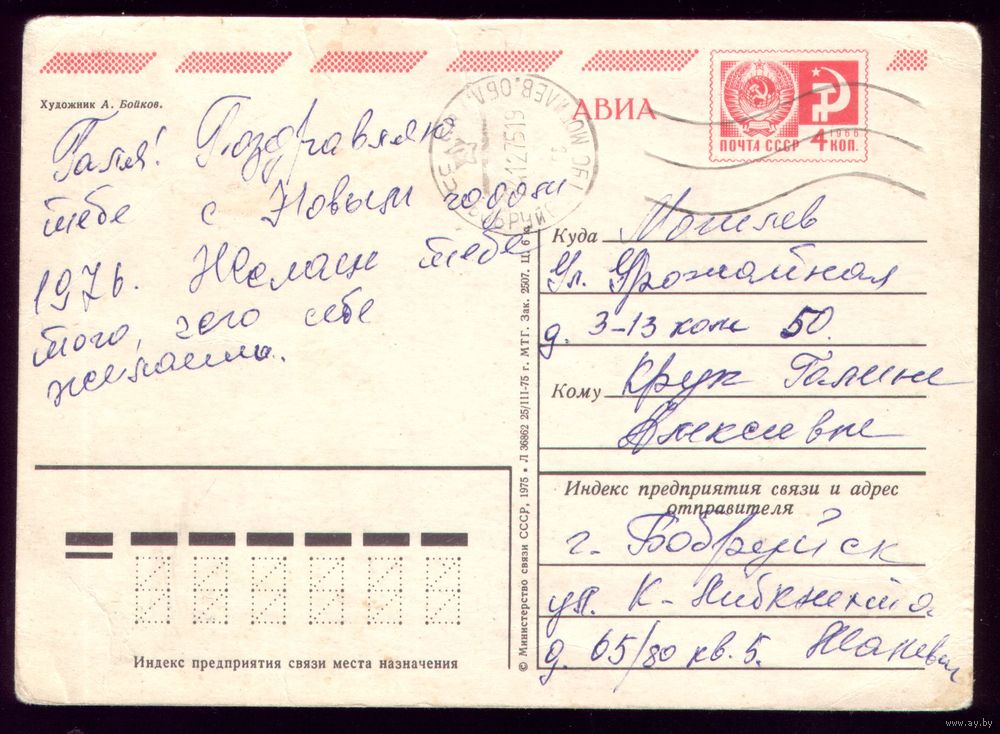 Художник А. Бойков.
АВИА
1966
ПОЧТА СССР 4 КОП.
Галя! Поздравляю
тебе с Новым годом
1976. Желаем тебе
того, чего себе
желаешь.
Куда Могилев
Ул. Урожайная
д. 3-13 ком 50.
Кому Крук Галине
Алексеевне
Индекс предприятия связи и адрес
отправителя
г. Бобруйск
ул. К-Либкнехта
д. 65/80 кв. 5.
Индекс предприятия связи места назначения
© Министерство связи СССР, 1975 • Л 36862 25/III-75 г. МТГ. Зак. 2507. Ц. 6 к.
www.ay.by